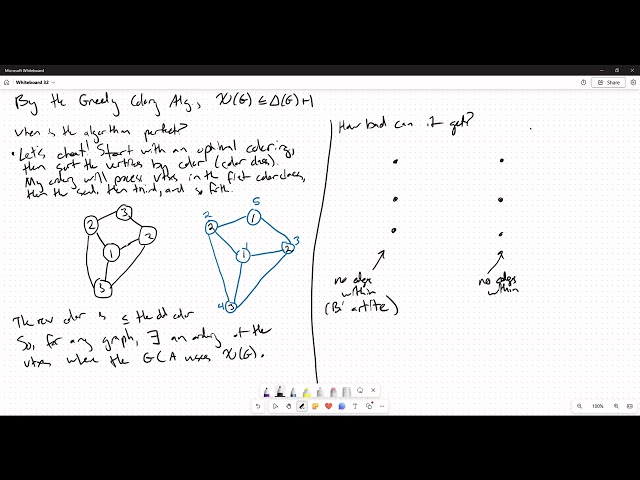 Microsoft Whiteboard
Whiteboard 32
Share
By the Greedy Coloring Alg., χ(G) ≤ Δ(G)+1
When is the algorithm perfect?
• Let's cheat! Start with an optimal coloring,
then sort the vertices by color (color class).
My ordering will process vtxs in the first color class,
then the second, then third, and so forth.
3
2
2
1
3
5
2
1
2
2
3
1
1
4
3
The new color is ≤ the old color
So, for any graph, ∃ an ordering of the
vtxs where the GCA uses χ(G).
How bad can it get?
no edges
within
(Bi artite)
no edges
within
100%